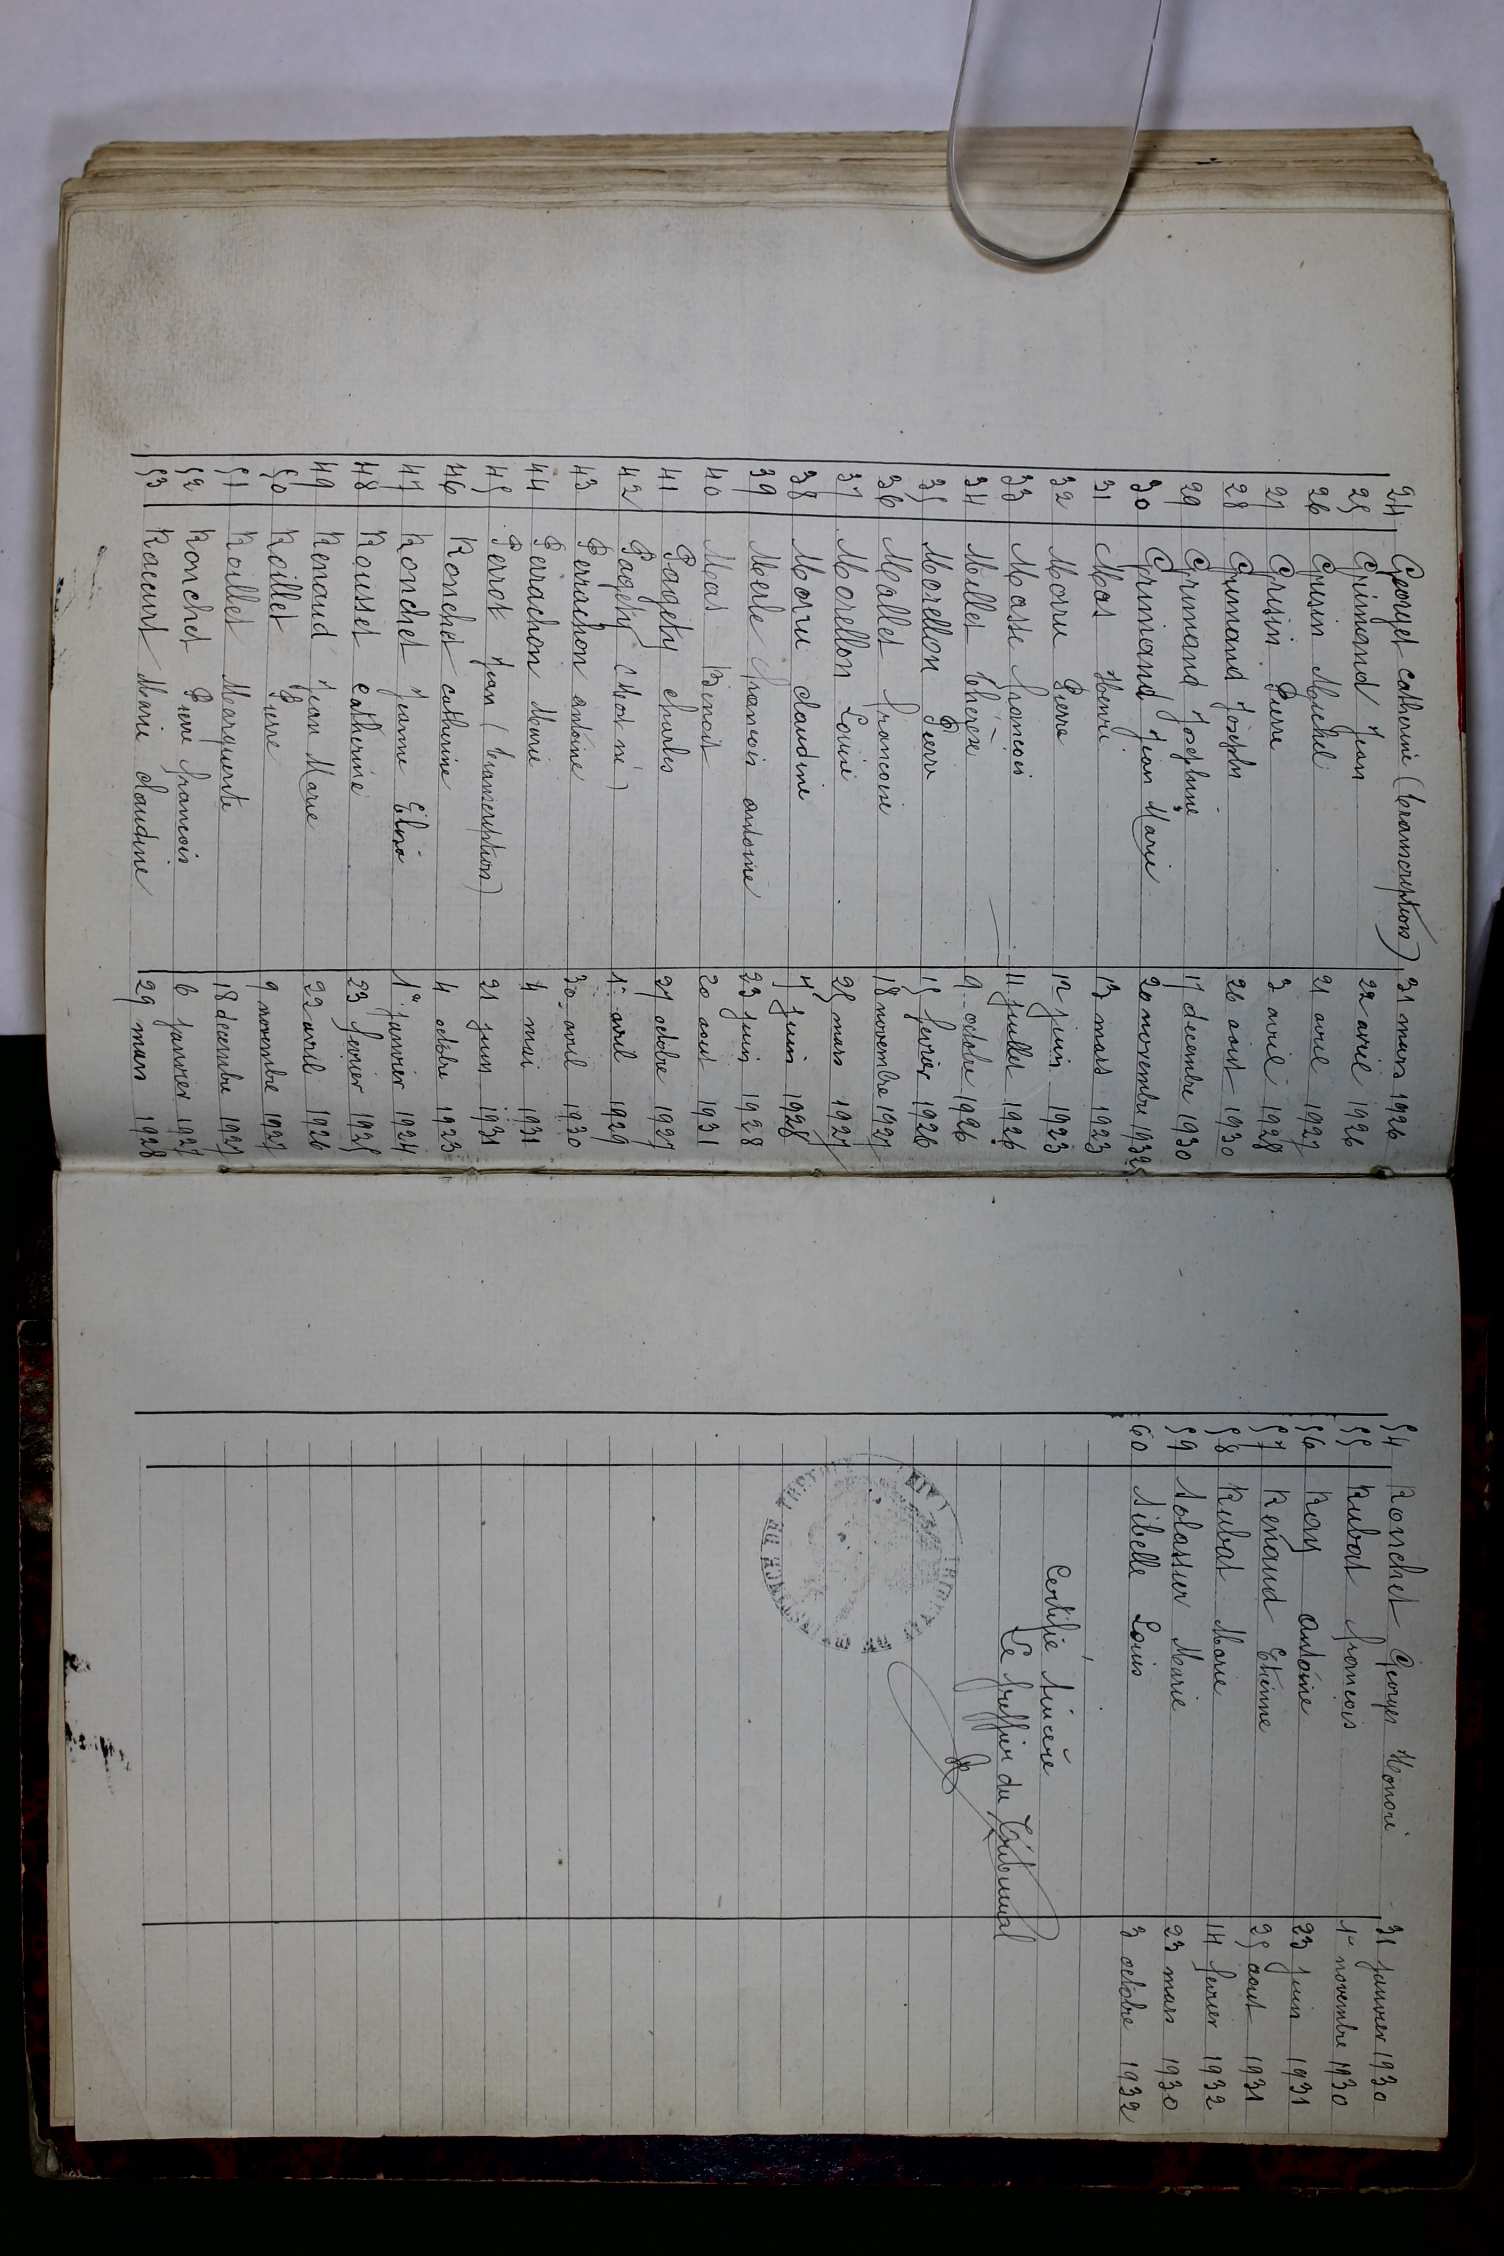 24 Georget catherine (transcription) 31 mars 1926
25 Grimand Jean 22 avril 1926
26 Grisin Michel 21 avril 1927
27 Grisin Pierre 3 avril 1928
28 Grimand Joseph 26 aout 1930
29 Grimand Josephine 17 decembre 1930
30 Grimand Jean Marie 20 novembre 1932
31 Mas Henri 13 mars 1923
32 Morru Pierre 12 juin 1923
33 Masse francois 11 juillet 1926
34 Millet Thérèse 9 octobre 1926
35 Morellon Pierre 15 fevrier 1926
36 Mallet francoise 18 novembre 1927
37 Morellon Louise 25 mars 1927
38 Morru claudine 4 juin 1928
39 Merle francois antoine 23 juin 1928
40 Mas Benoit 20 aout 1931
41 Pagety charles 27 octobre 1927
42 Pagety (Mort né) 1er avril 1929
43 Perrachon antoine 30 avril 1930
44 Perrachon Marie 4 mai 1931
45 Perrot Jean (transcription) 21 juin 1931
46 Ronchet catherine 4 octobre 1923
47 Ronchet Jeanne Elisa 1er janvier 1924
48 Rousset catherine 23 fevrier 1925
49 Renaud Jean Marie 22 avril 1926
50 Roillet Pierre 9 novembre 1927
51 Roillet Marguerite 18 decembre 1927
52 Ronchet Pierre francois 6 janvier 1927
53 Racourt Marie claudine 29 mars 1928
54 Ronchet Georges Honoré 31 janvier 1930
55 Rubat francois 1er novembre 1930
56 Roy antoine 23 juin 1931
57 Renaud Etienne 25 aout 1931
58 Rubat Marie 14 fevrier 1932
59 Solassier Marie 23 mars 1930
60 Sibelle Louis 3 octobre 1932
Certifié sincère
Le Greffier du Tribunal